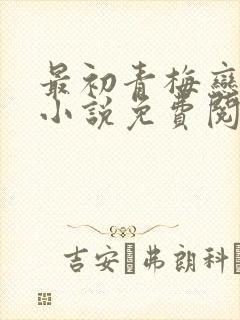 最初青梅戀
小說免費閱
吉安 弗朗科